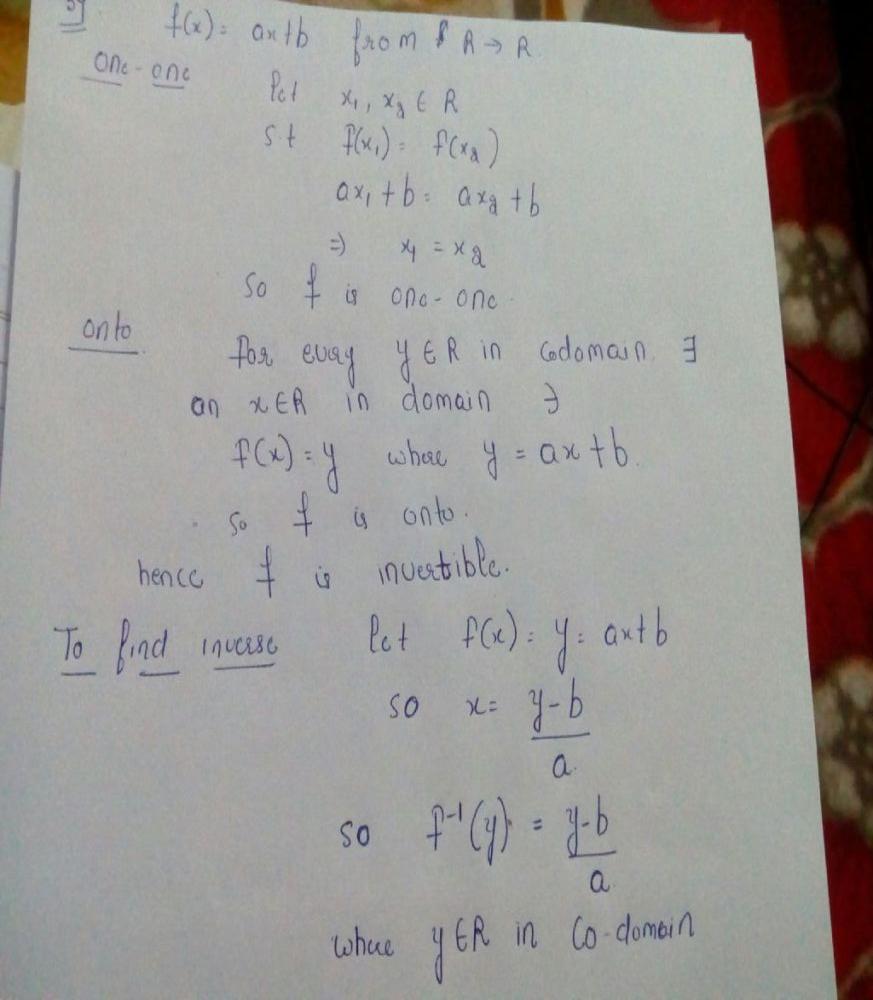 f(x) = ax+b from R → R
one-one
let x₁, x₂ ∈ R
s t f(x₁) = f(x₂)
ax₁ + b = ax₂ + b
⇒ x₁ = x₂
so f is one-one.
onto
for every y ∈ R in codomain ∃
an x ∈ R in domain ∋
f(x) = y where y = ax + b.
so f is onto.
hence f is invertible.
To find inverse let f(x) = y = ax+b
so x = y-b
a.
so f⁻¹(y) = y-b
a
where y ∈ R in Co-domain